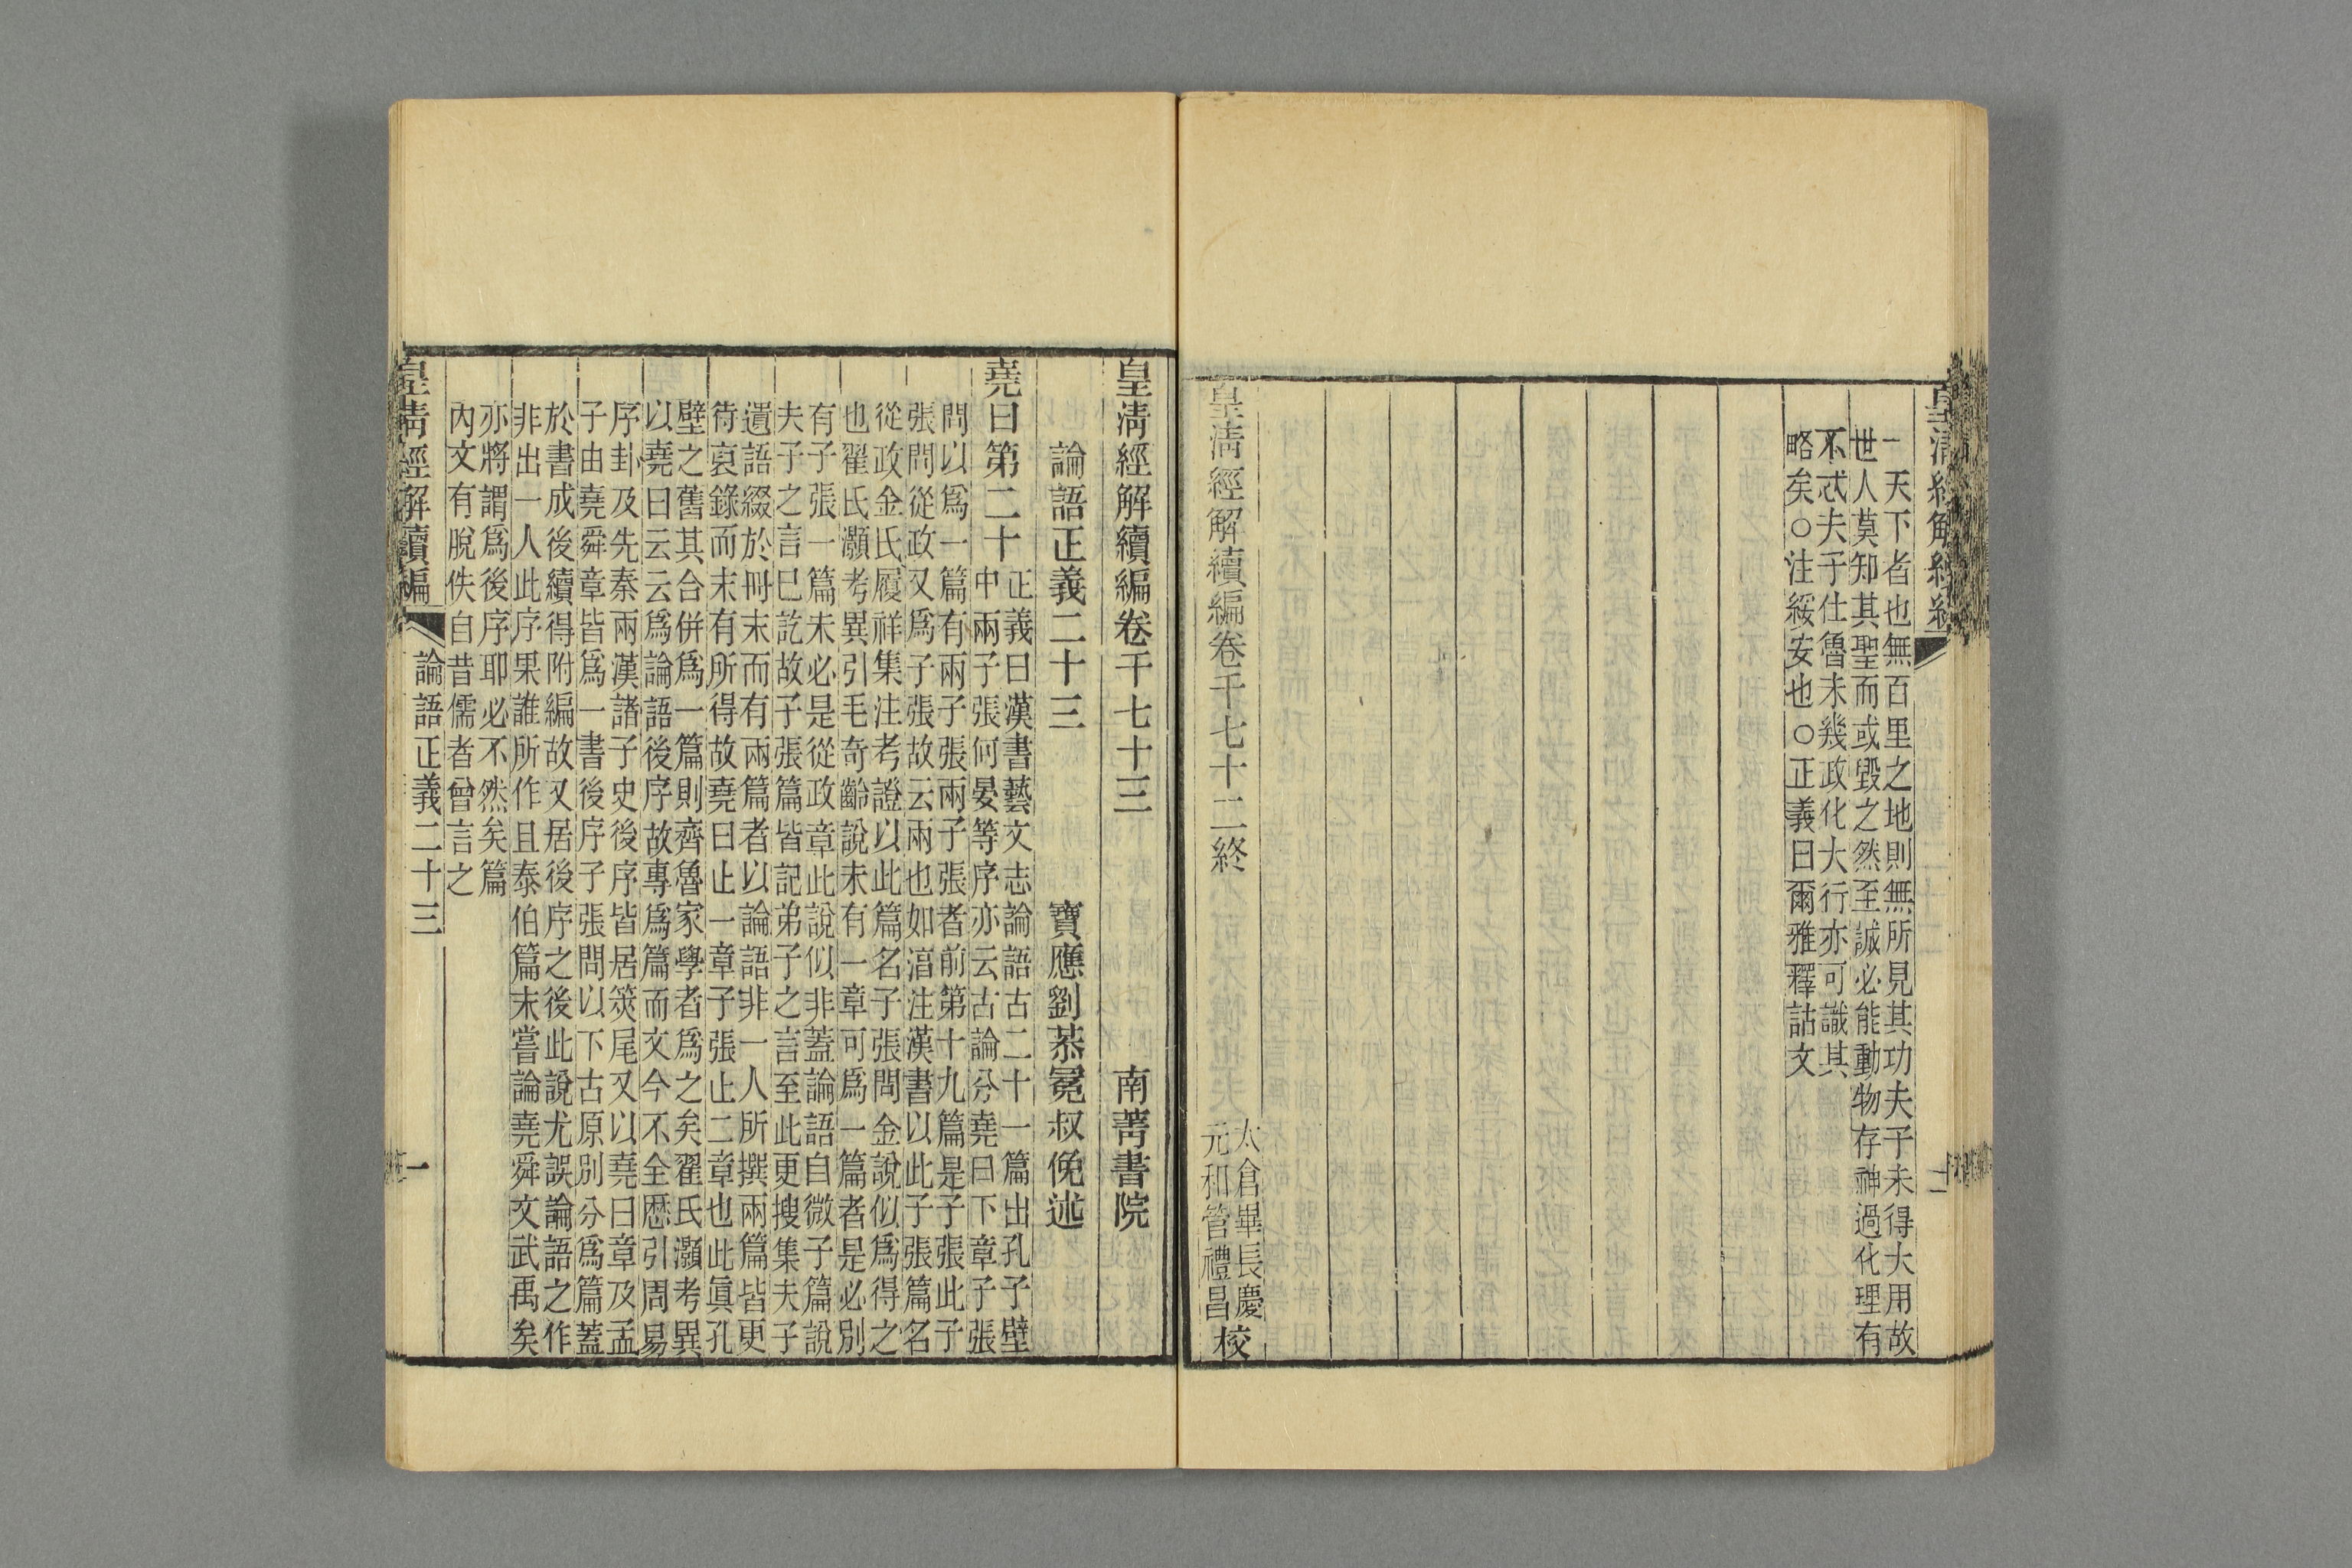 一天下者也無百里之地則無所見其功夫子未得大用故
世人莫知其聖而或毀之然至誠必能動物存神過化理有
不忒夫子仕魯未幾政化大行亦可識其
略矣○注綏安也○正義曰爾雅釋詁文
皇清經解續編卷千七十二終
太倉畢長慶
元和管禮昌
校
皇清經解續編卷千七十三
南菁書院
論語正義二十三
寶應劉恭冕叔俛述
堯曰第二十
正義曰漢書藝文志論語古二十一篇出孔子壁
中兩子張何晏等序亦云古論分堯曰下章子張
問以爲一篇有兩子張兩子張者前第十九篇是子張此子
張問從政又爲子張故云兩也如淳注漢書以此子張篇名
從政金氏履祥集注考證以此篇名子張問金說似爲得之
也翟氏灝考異引毛奇齡說未有一章可爲一篇者是必別
有子張一篇未必是從政章此說似非蓋論語自微子篇說
夫子之言已訖故子張篇皆記弟子之言至此更搜集夫子
遺語綴於冊末而有兩篇者以論語非一人所撰兩篇皆更
待裒錄而末有所得故堯曰止一章子張止二章也此眞孔
壁之舊其合併爲一篇則齊魯家學者爲之矣翟氏灝考異
以堯曰云云爲論語後序故專爲篇而文今不全歷引周易
序卦及先秦兩漢諸子史後序皆居筴尾又以堯曰章及孟
子由堯舜章皆爲一書後序子張問以下古原別分爲篇蓋
於書成後續得附編故又居後序之後此說尤誤論語之作
非出一人此序果誰所作且泰伯篇末嘗論堯舜文武禹矣
亦將謂爲後序耶必不然矣篇
內文有脫佚自昔儒者曾言之
皇清經解續編
論語正義二十三
一